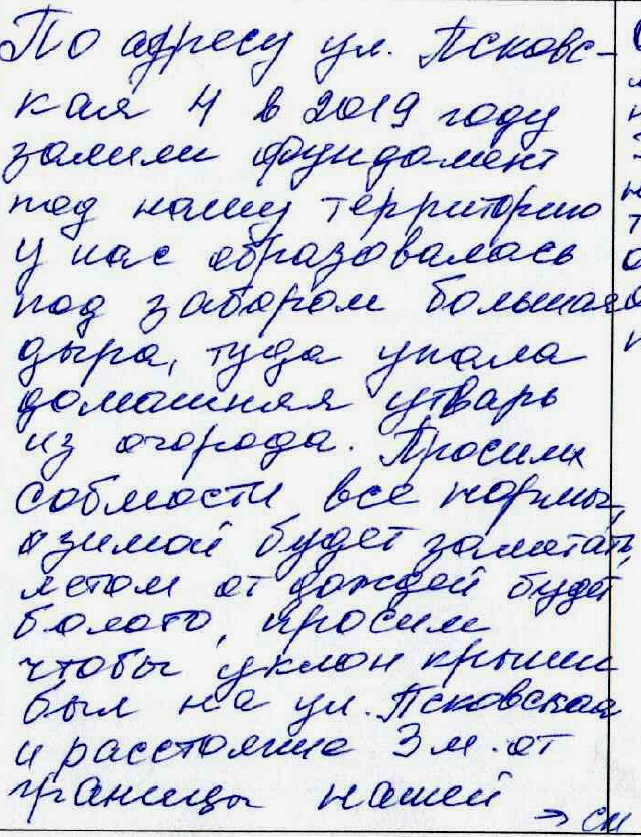 По адресу ул. Псковс-
кая 4 в 2019 году
залили фундамент
под нашу территорию
у нас образовалась
под забором большая
дыра, туда упала
домашняя утварь
из огорода. Просим
соблюсти все нормы,
зимой будет заметать,
летом от дождей будет
болото, просим
чтобы уклон крыши
был на ул. Псковская
и расстояние 3 м. от
границы нашей → см